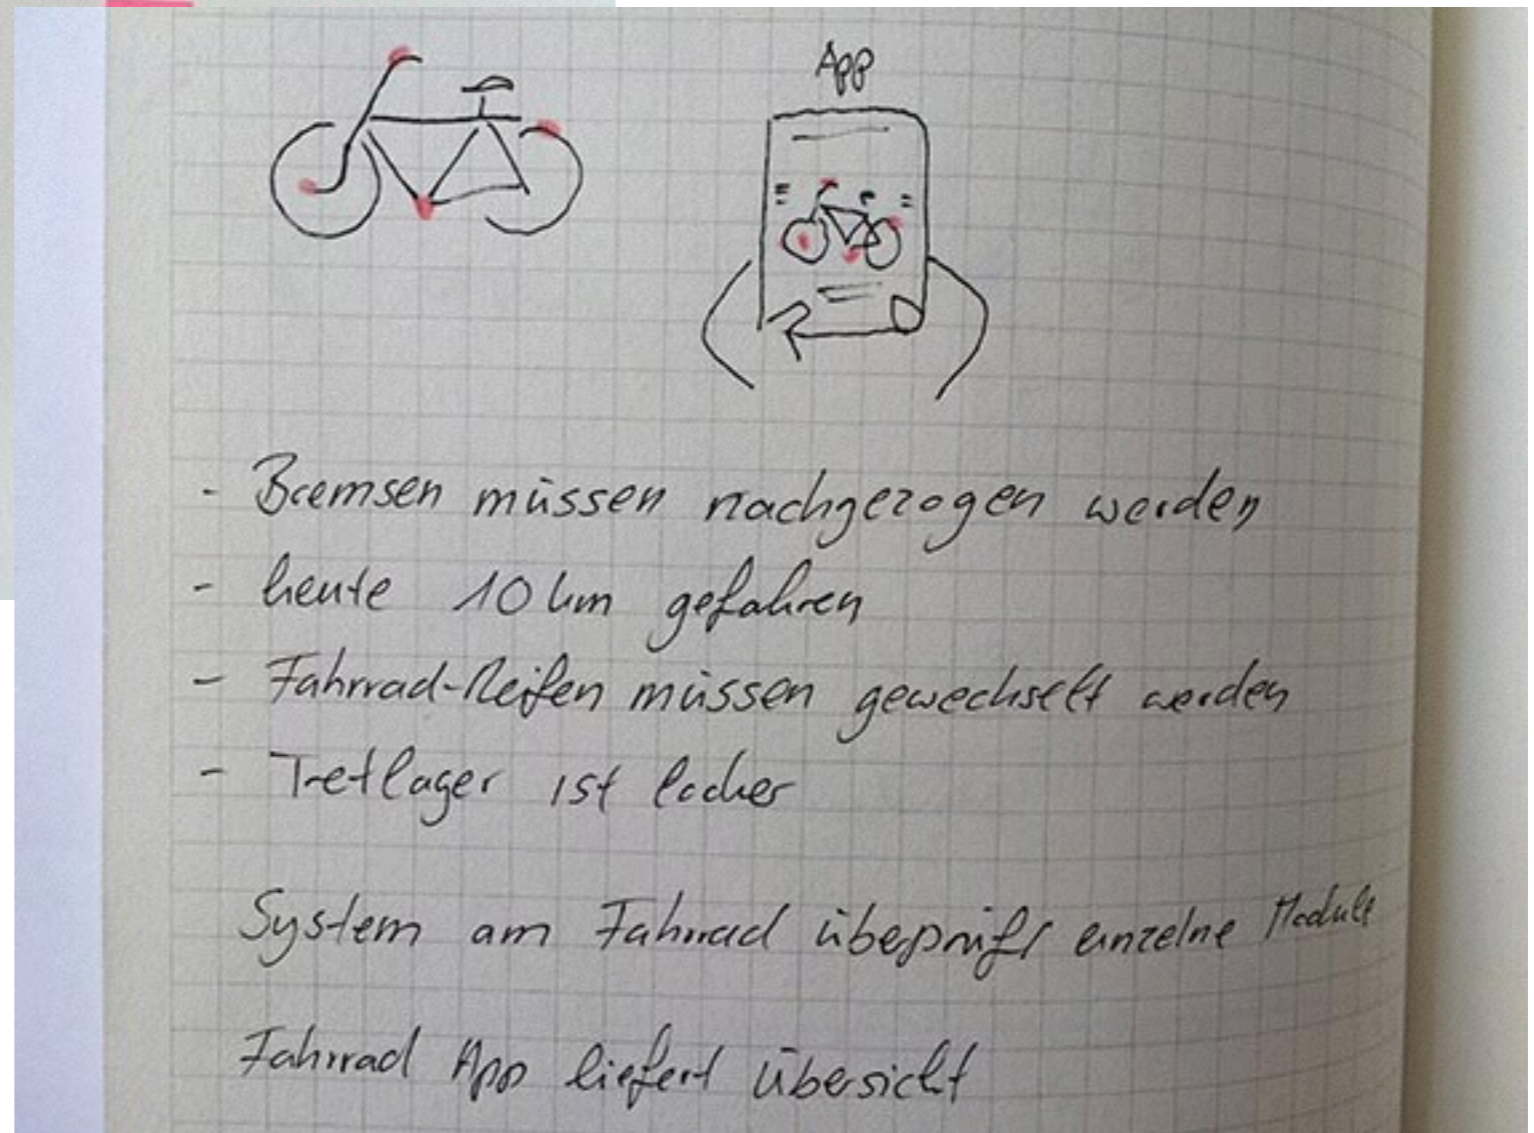 App
- Bremsen müssen nachgezogen werden
- heute 10 km gefahren
- Fahrrad-Reifen müssen gewechselt werden
- Tretlager ist locker
System am Fahrrad überprüft einzelne Module
Fahrrad App liefert Übersicht